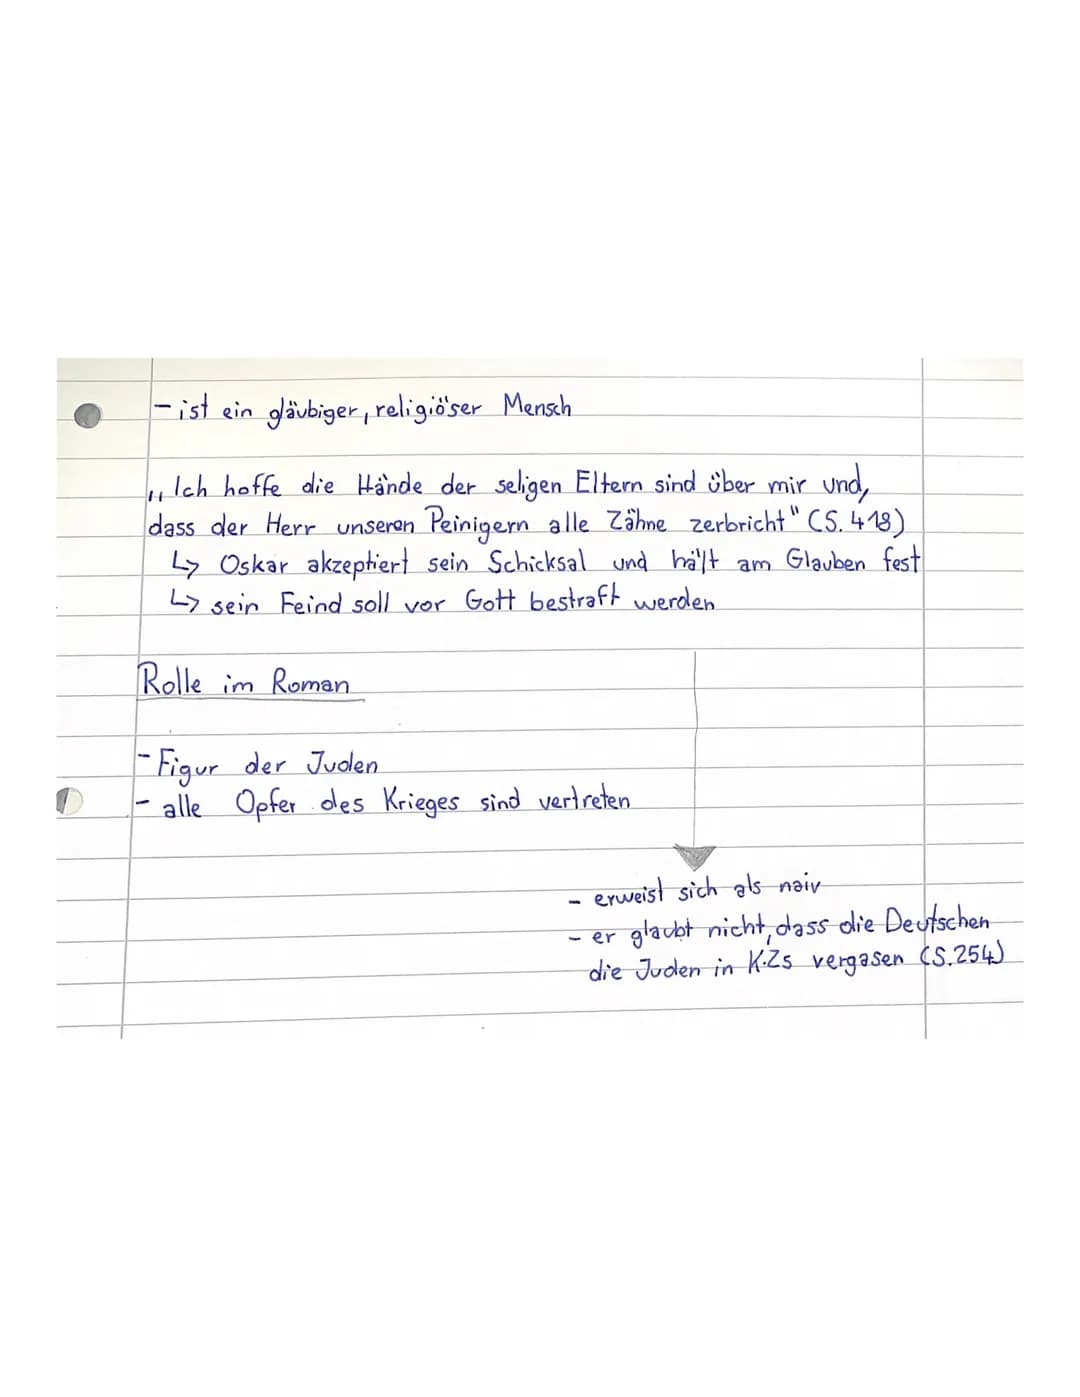 - ist ein gläubiger, religiöser Mensch
„Ich hoffe die Hände der seligen Eltern sind über mir und,
dass der Herr unseren Peinigern alle Zähne zerbricht" (S. 418)
↳ Oskar akzeptiert sein Schicksal und hält am Glauben fest
↳ sein Feind soll vor Gott bestraft werden
Rolle im Roman
- Figur der Juden
- alle Opfer des Krieges sind vertreten
- erweist sich als naiv
- er glaubt nicht, dass die Deutschen
die Juden in K.Zs vergasen (S.254)